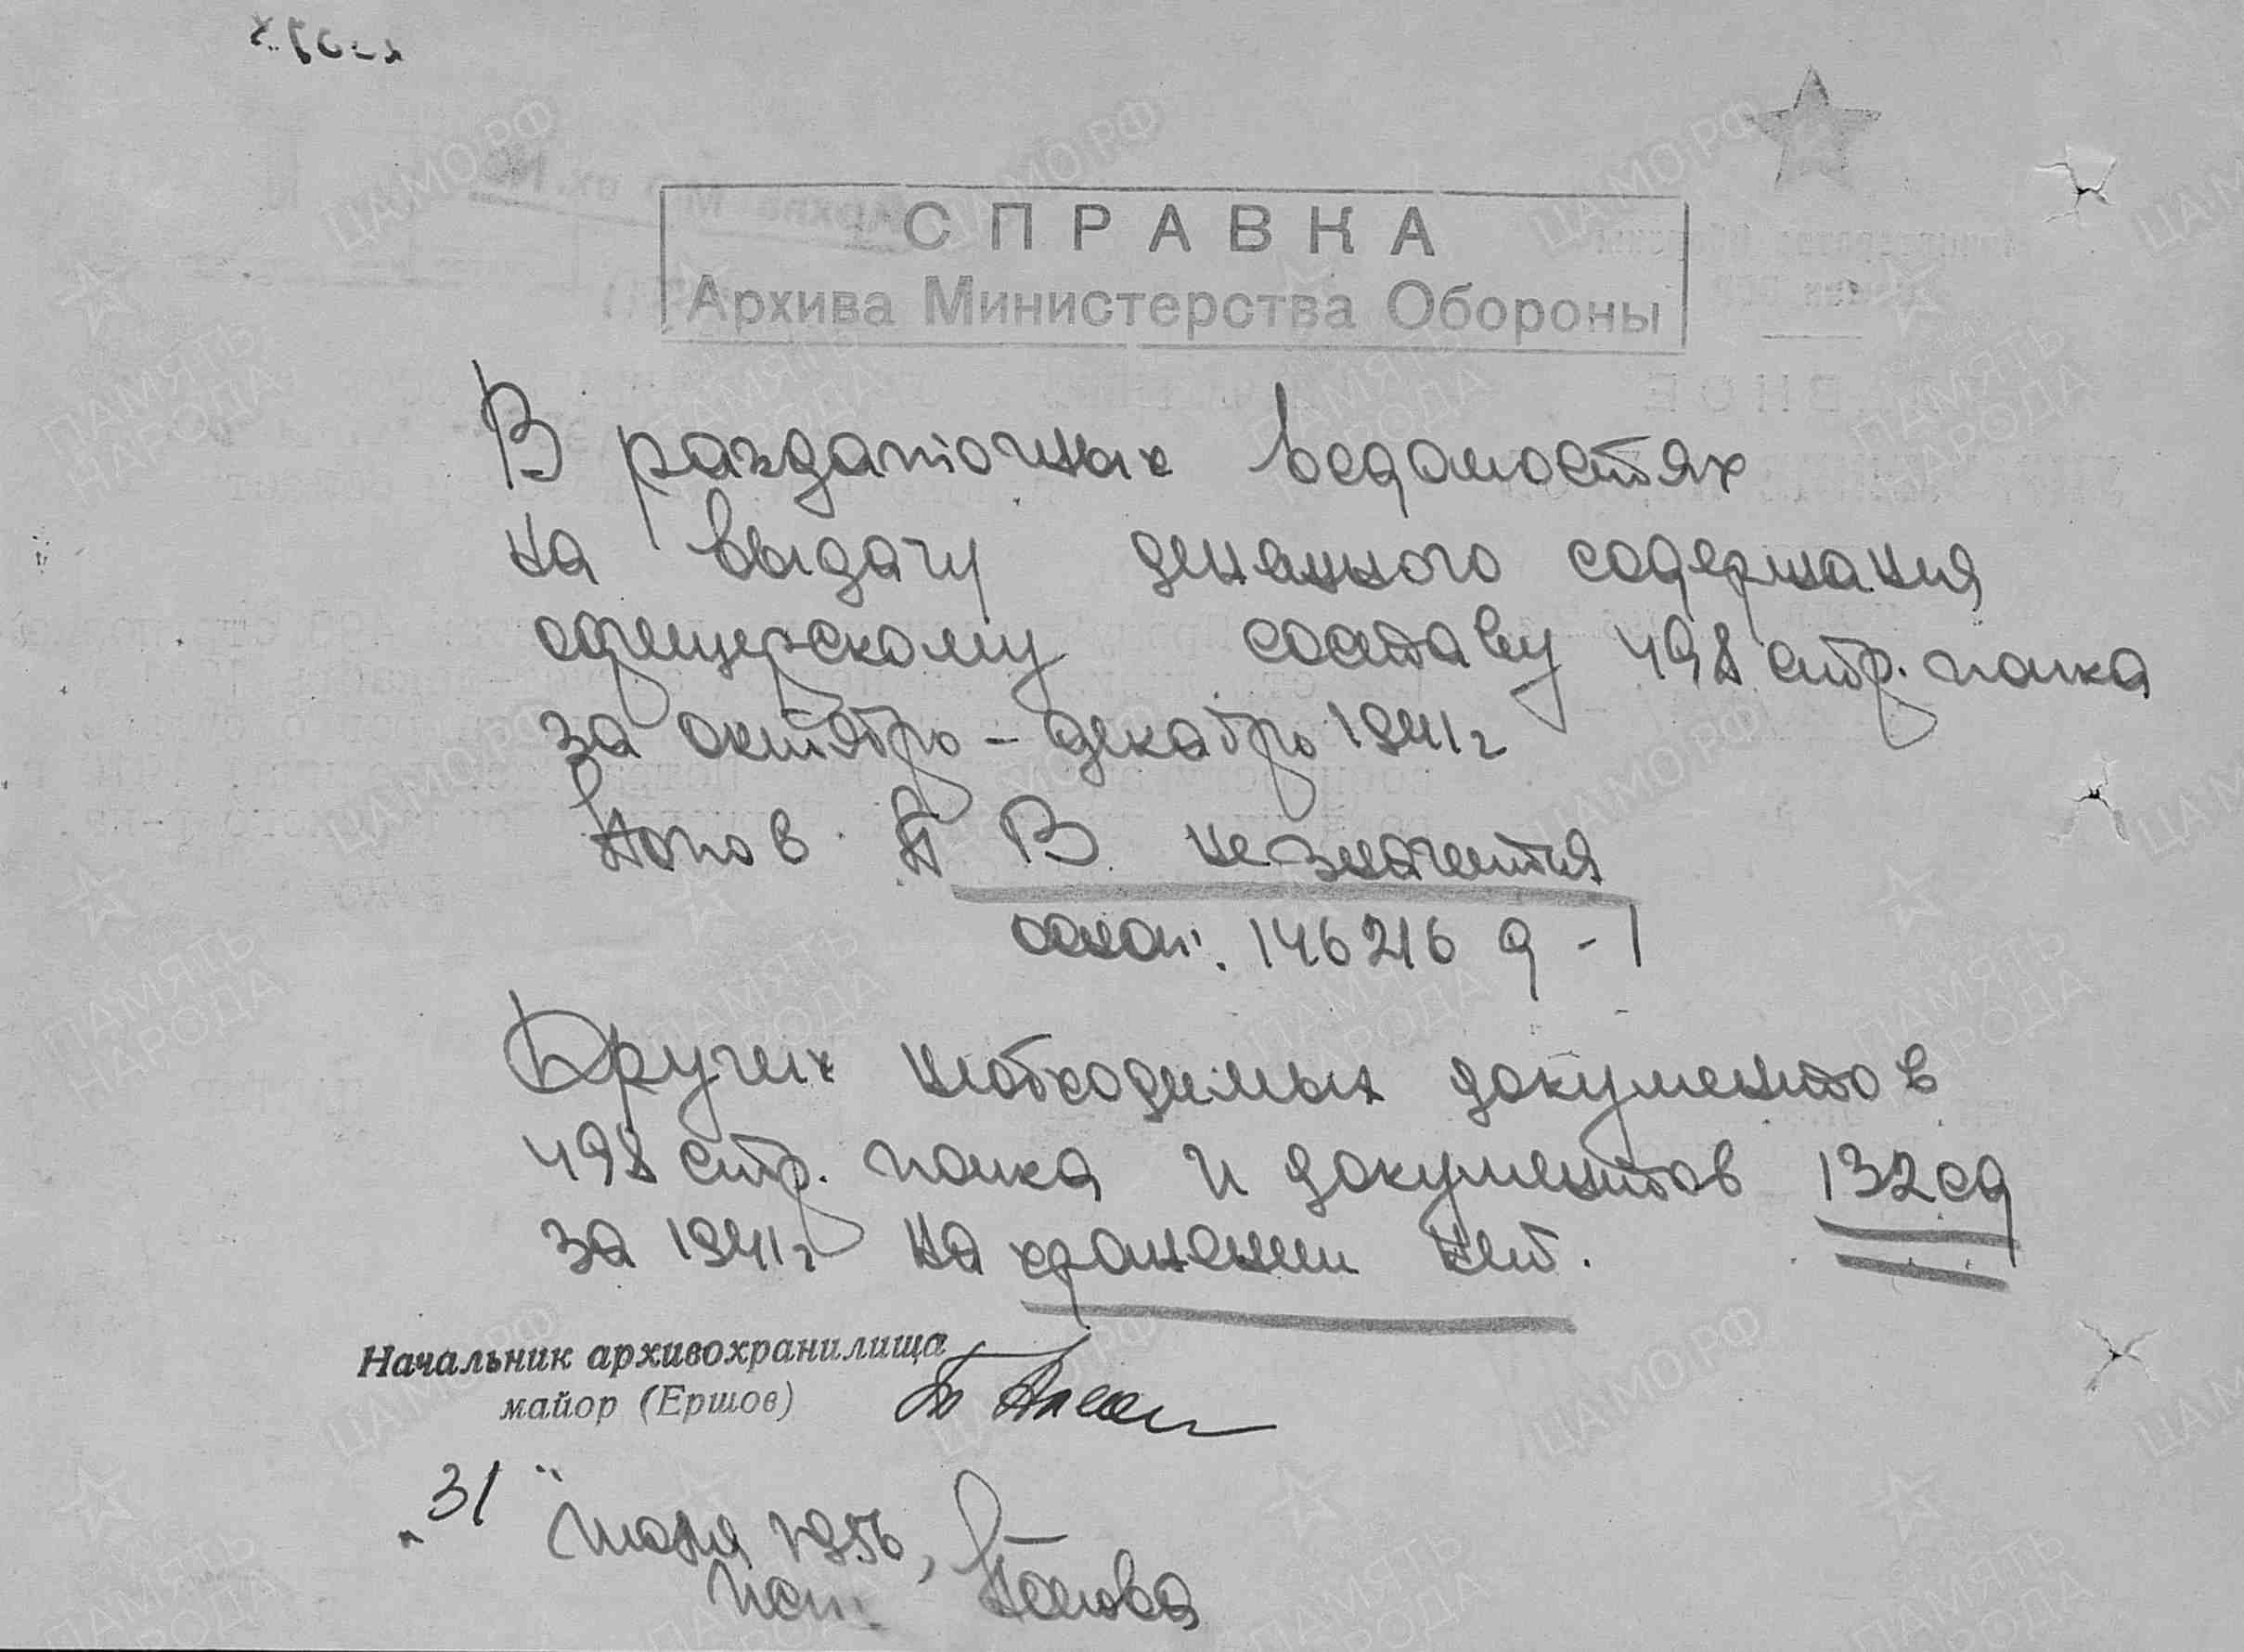 СПРАВКА
Архива Министерства Обороны
В раздаточных ведомостях
на выдачу денежного содержания
офицерскому составу 498 стр. полка
за октябрь – декабрь 1941г
Попов П В не значится
основ: 146216 д - 1
Других необходимых документов
498 стр. полка и документов 132 сд
за 1941г на хранении нет.
Начальник архивохранилища
майор (Ершов)
"31"
июля 1956,
исп:
ЦАМО.РФ
ПАМЯТЬ
НАРОДА